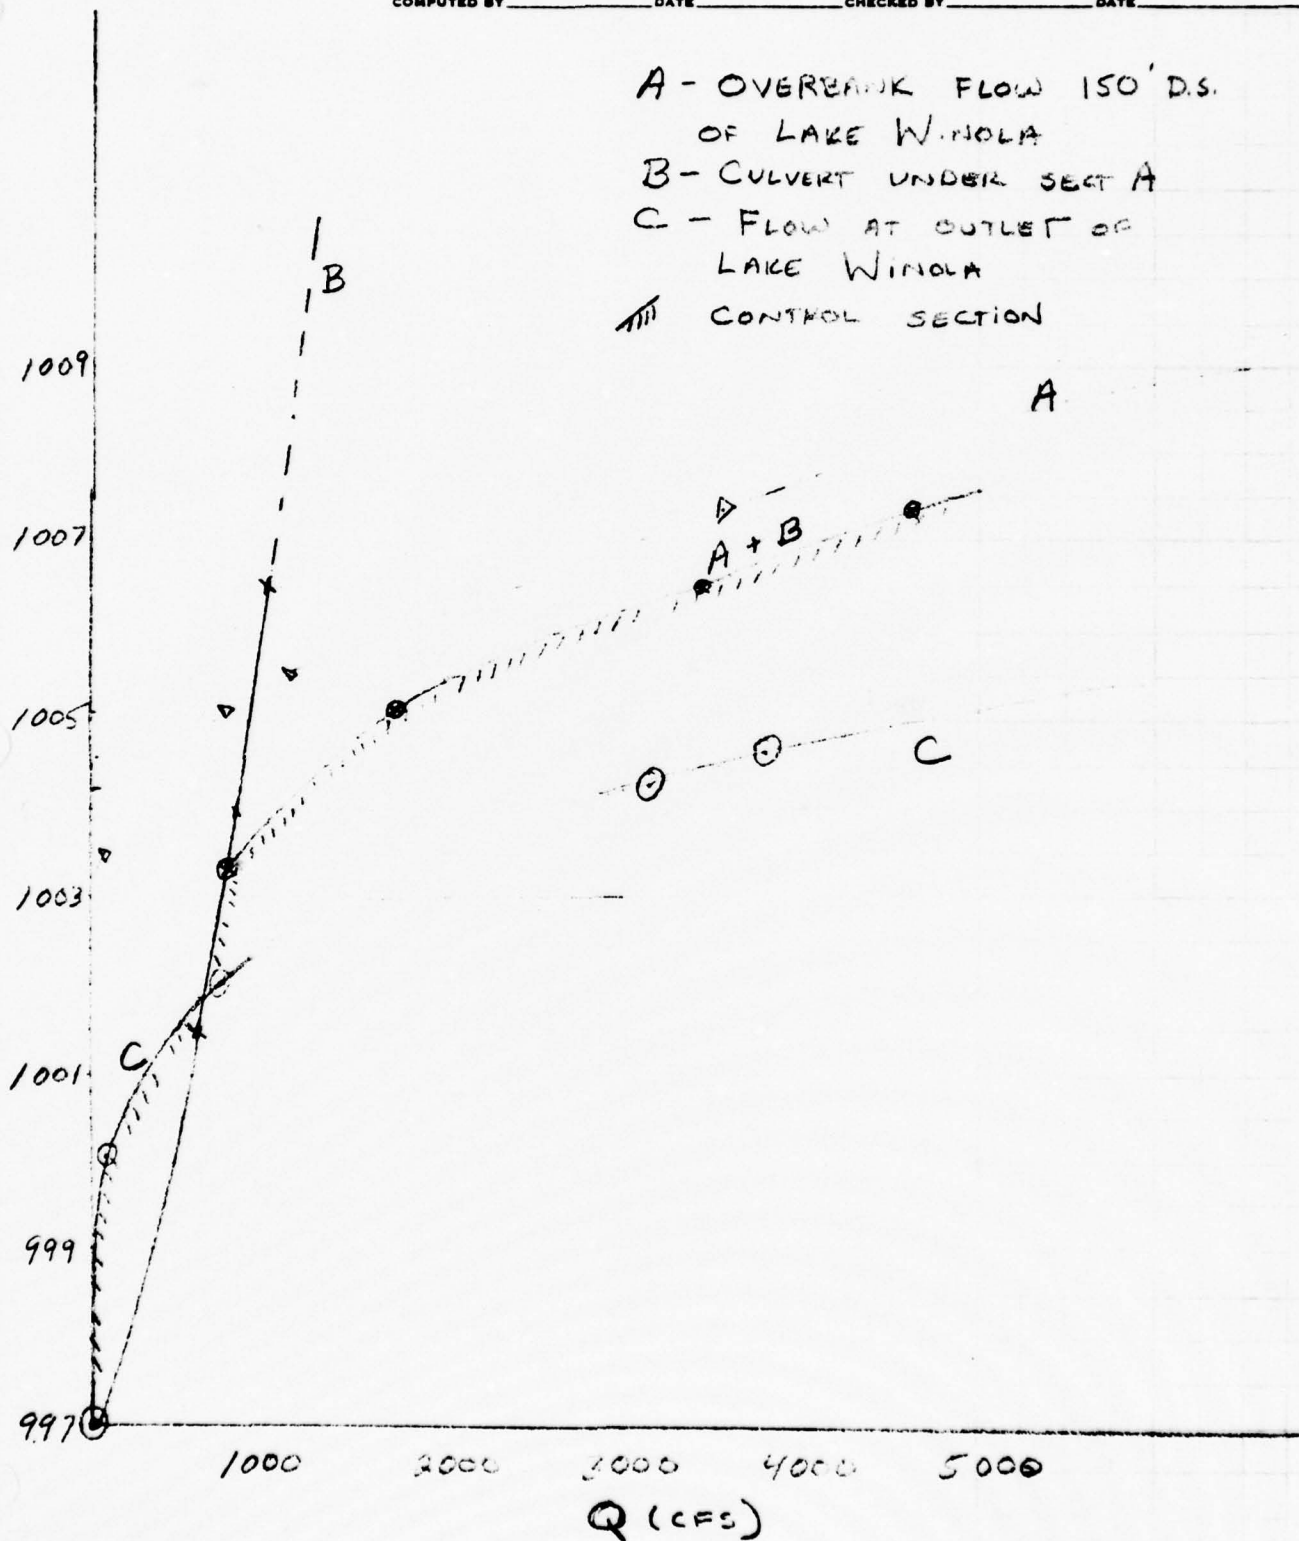 COMPUTED BY DATE CHECKED BY DATE
A - OVERBANK FLOW 150' D.S.
OF LAKE WINOLA
B - CULVERT UNDER SECT A
C - FLOW AT OUTLET OF
LAKE WINOLA
CONTROL SECTION
B
1009
A
1007
A + B
1005
C
1003
C
1001
999
997
1000 2000 3000 4000 5000
Q (CFS)